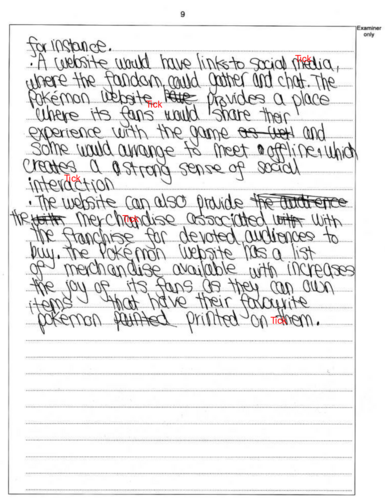 9
Examiner
only
for instance.
· A website would have links to social media,
Tick
where the fandom could gather and chat. The
Pokémon website provides a place
Tick
where its fans would share their
experience with the game as well and
some would arrange to meet offline, which
creates a strong sense of social
Tick
interaction
· The website can also provide the audience
the with merchandise associated with with
Tick
the franchise for devoted audiences to
buy. The Pokémon website has a list
of merchandise available with increases
the joy of its fans as they can own
items that have their favourite
pokemon painted printed on them.
Tick